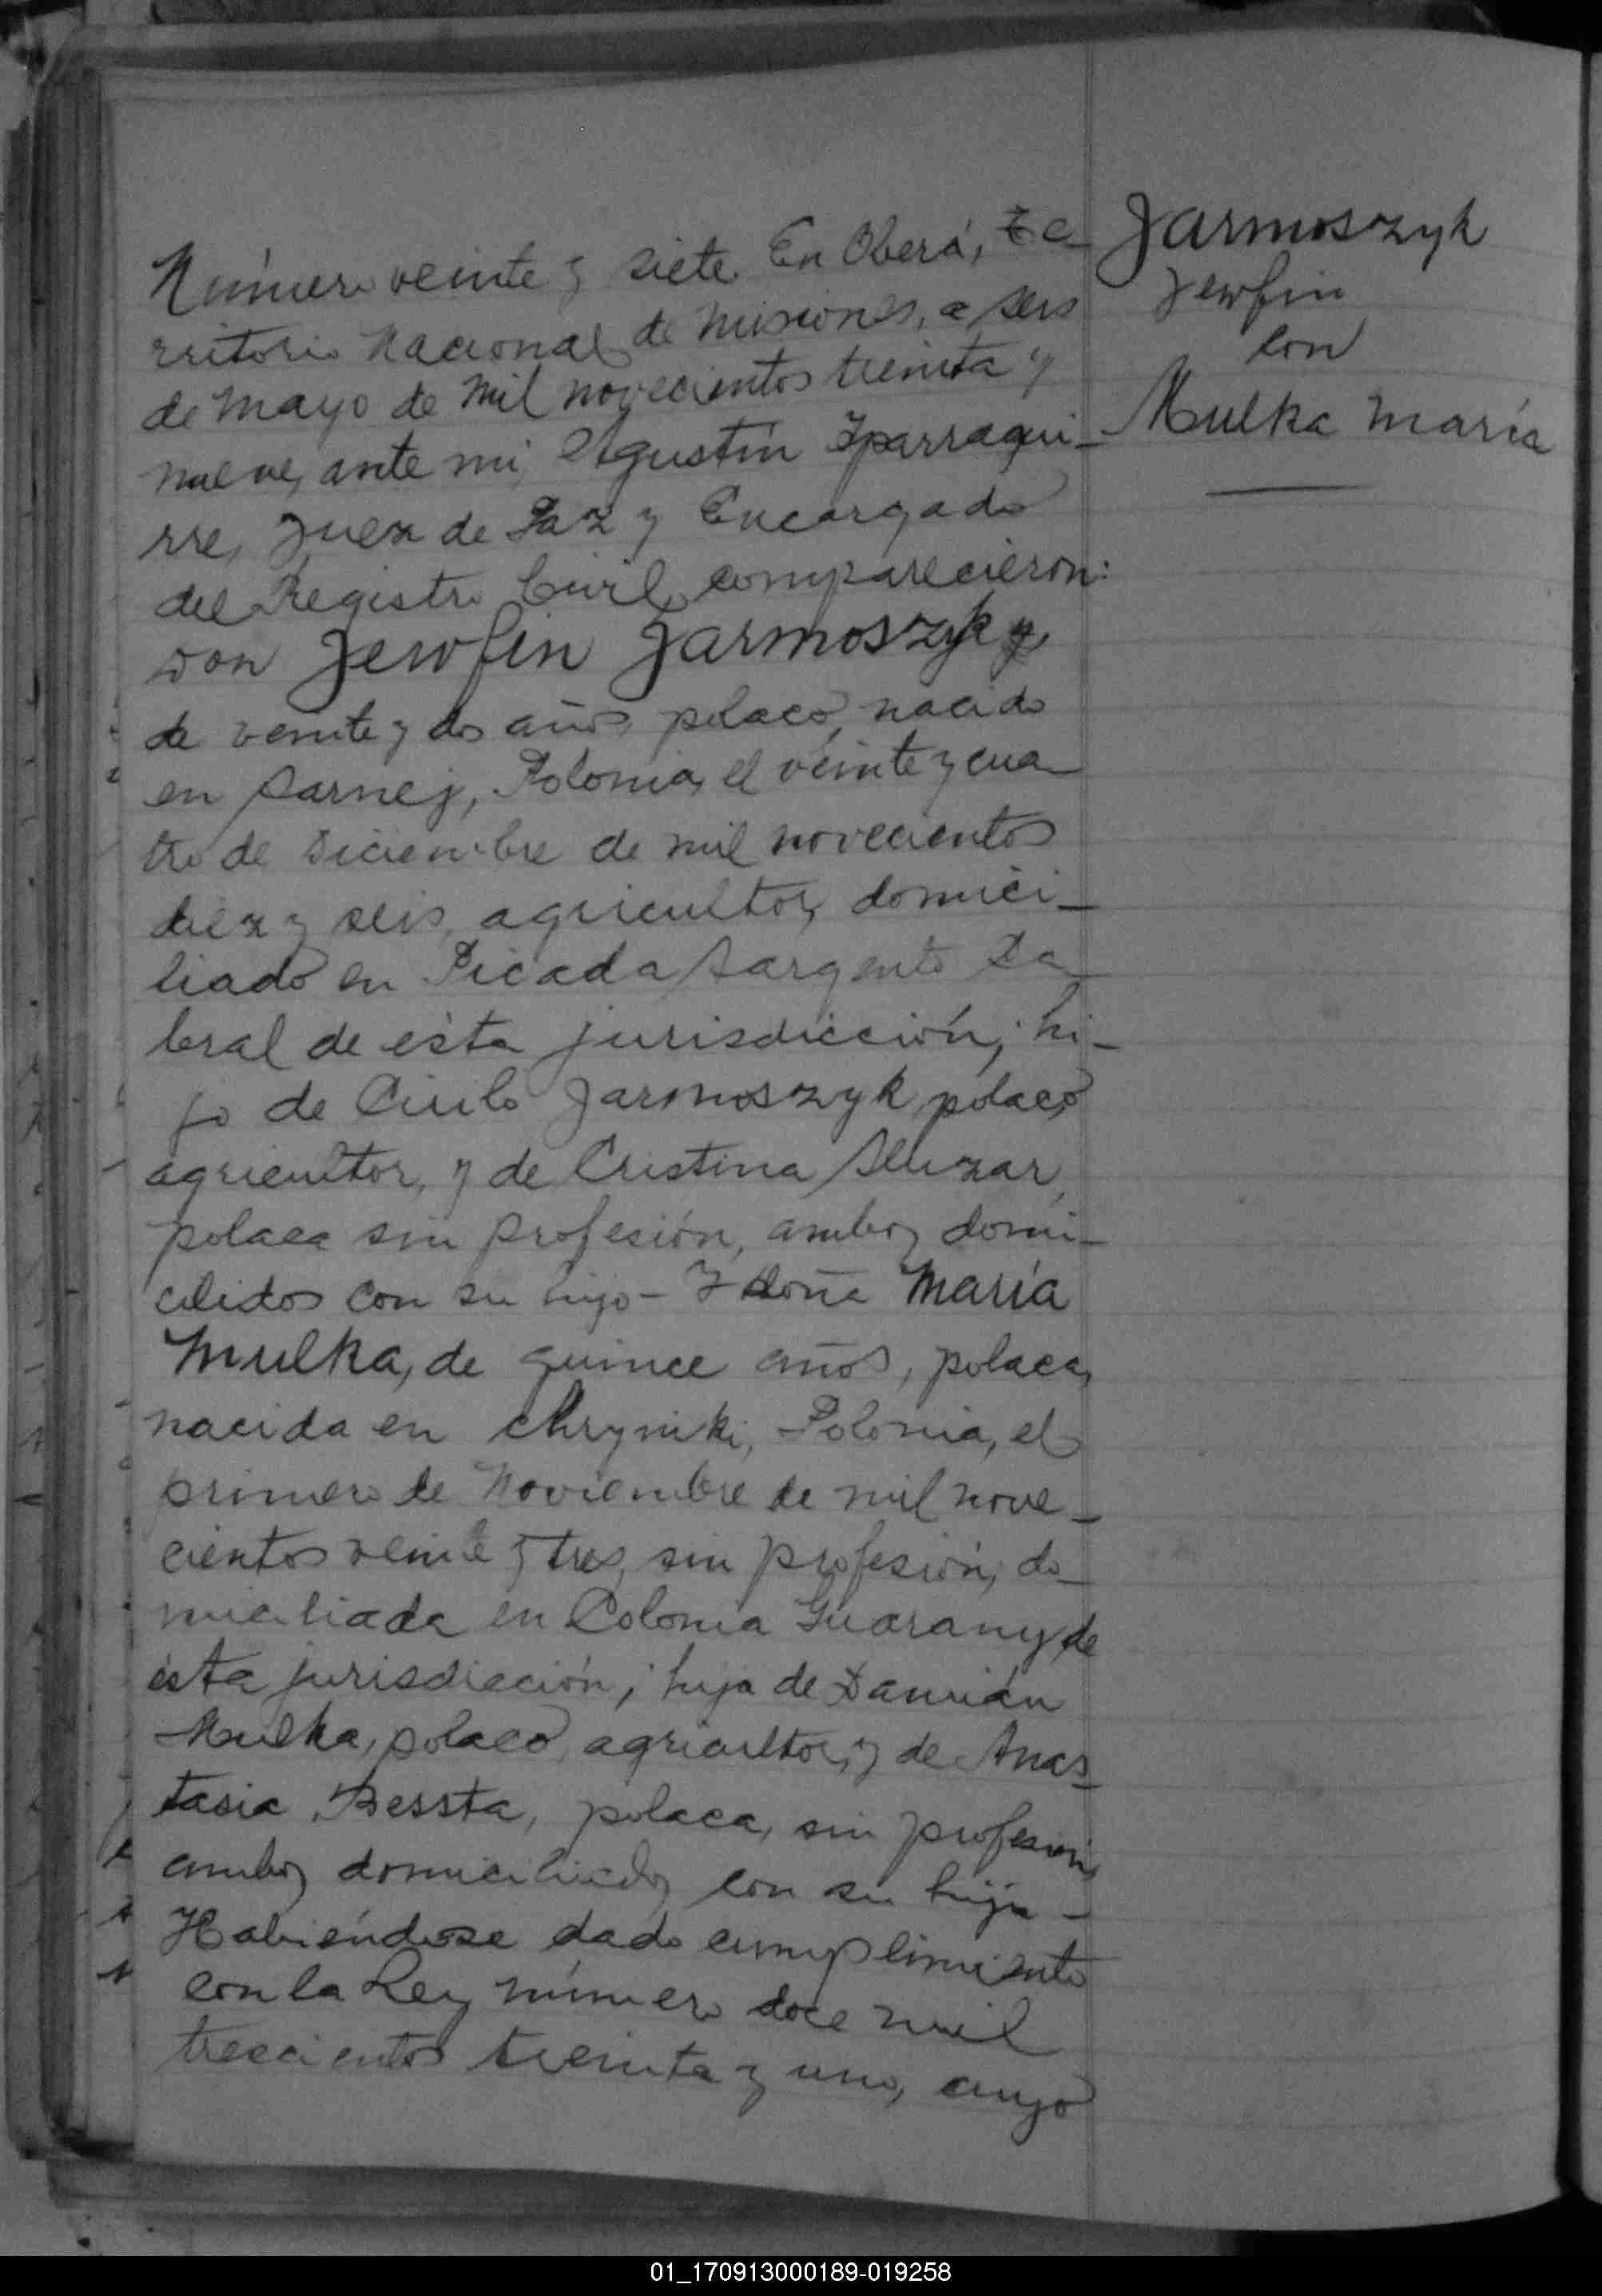 Número veinte y siete. En Oberá, Te-
rritorio Nacional de Misiones, a seis
de Mayo de mil novecientos treinta y
nueve, ante mi, Agustín Yparragui-
rre, Juez de Paz y Encargado
del Registro Civil, comparecieron:
Don Jewfin Jarmoszyk,
de veinte y dos años, polaco, nacido
en Sarnej, Polonia, el veinte y cua-
tro de Diciembre de mil novecientos
diez y seis, agricultor, domici-
liado en Picada Sargento Ca-
bral de ésta jurisdicción; hi-
jo de Cirilo Jarmoszyk, polaco,
agricultor, y de Cristina
polaca sin profesión, ambos domi-
cilidos con su hijo - Y doña María
Mulka, de quince años, polaca,
nacida en Chryniki, Polonia, el
primero de Noviembre de mil nove-
cientos veinte y tres, sin profesión, do-
miciliada en Colonia Guarany de
ésta jurisdicción; hija de Damián
Mulka, polaco, agricultor, y de Anas-
tasia Bessta, polaca, sin profesión,
ambos domiciliados con su hija -
Habiéndose dado cumplimiento
con la Ley número doce mil
trescientos treinta y uno, cuyo
Jarmoszyk
Jewfin
con
Mulka María
01_170913000189-019258